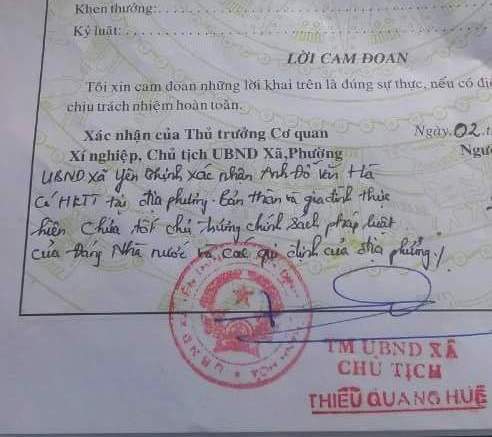 Khen thưởng:
Kỷ luật:
LỜI CAM ĐOAN
Tôi xin cam đoan những lời khai trên là đúng sự thực, nếu có đi
chịu trách nhiệm hoàn toàn.
Xác nhận của Thủ trưởng Cơ quan
Ngày 02
Xí nghiệp, Chủ tịch UBND Xã, Phường
Ngư
UBND xã Yên Thịnh xác nhận Anh Đỗ Văn Hà
Có HKTT tại địa phương. Bản thân và gia đình thực
hiện chưa tốt chủ trương chính sách pháp luật
của Đảng Nhà nước và các qui định của địa phương./
TM UBND XÃ
CHỦ TỊCH
THIỀU QUANG HUÊ